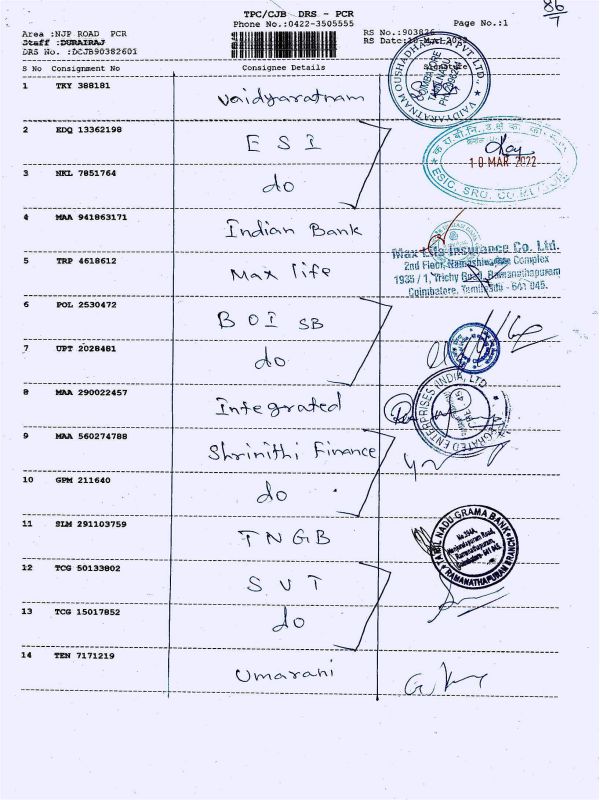 86
7
TPC/CJB DRS - PCR
Phone No.:0422-3505555
Page No.:1
Area :NJP ROAD PCR
Staff :DURAIRAJ
DRS No. :DCJB90382601
RS No.:903826
RS Date:
S No Consignment No Consignee Details Signature
1 TKY 388181 Vaidyaratnam
VAIDYARATNAM OUSHADHASALA PVT LTD.,
COIMBATORE
TAMILNADU
2 EDQ 13362198 E S I
10 MAR 2022
ESIC, SRO,
3 NKL 7851764 do
4 MAA 941863171 Indian Bank
5 TRP 4618612 Max life
Max Life Insurance Co. Ltd.
2nd Floor, Namashivaya Complex
1935 / 1, Trichy Road, Ramanathapuram
Coimbatore, Tamilnadu - 641 045.
6 POL 2530472 B O I SB
7 UPT 2028481 do
8 MAA 290022457 Integrated
INTEGRATED ENTERPRISES (INDIA) LTD
9 MAA 560274788 Shrinithi Finance
10 GPM 211640 do
11 SLM 291103759 T N G B
TAMIL NADU GRAMA BANK
Ramanathapuram,
Coimbatore- 641 045.
RAMANATHAPURAM BRANCH
12 TCG 50133802 S V T
13 TCG 15017852 do
14 TEN 7171219 Umarani